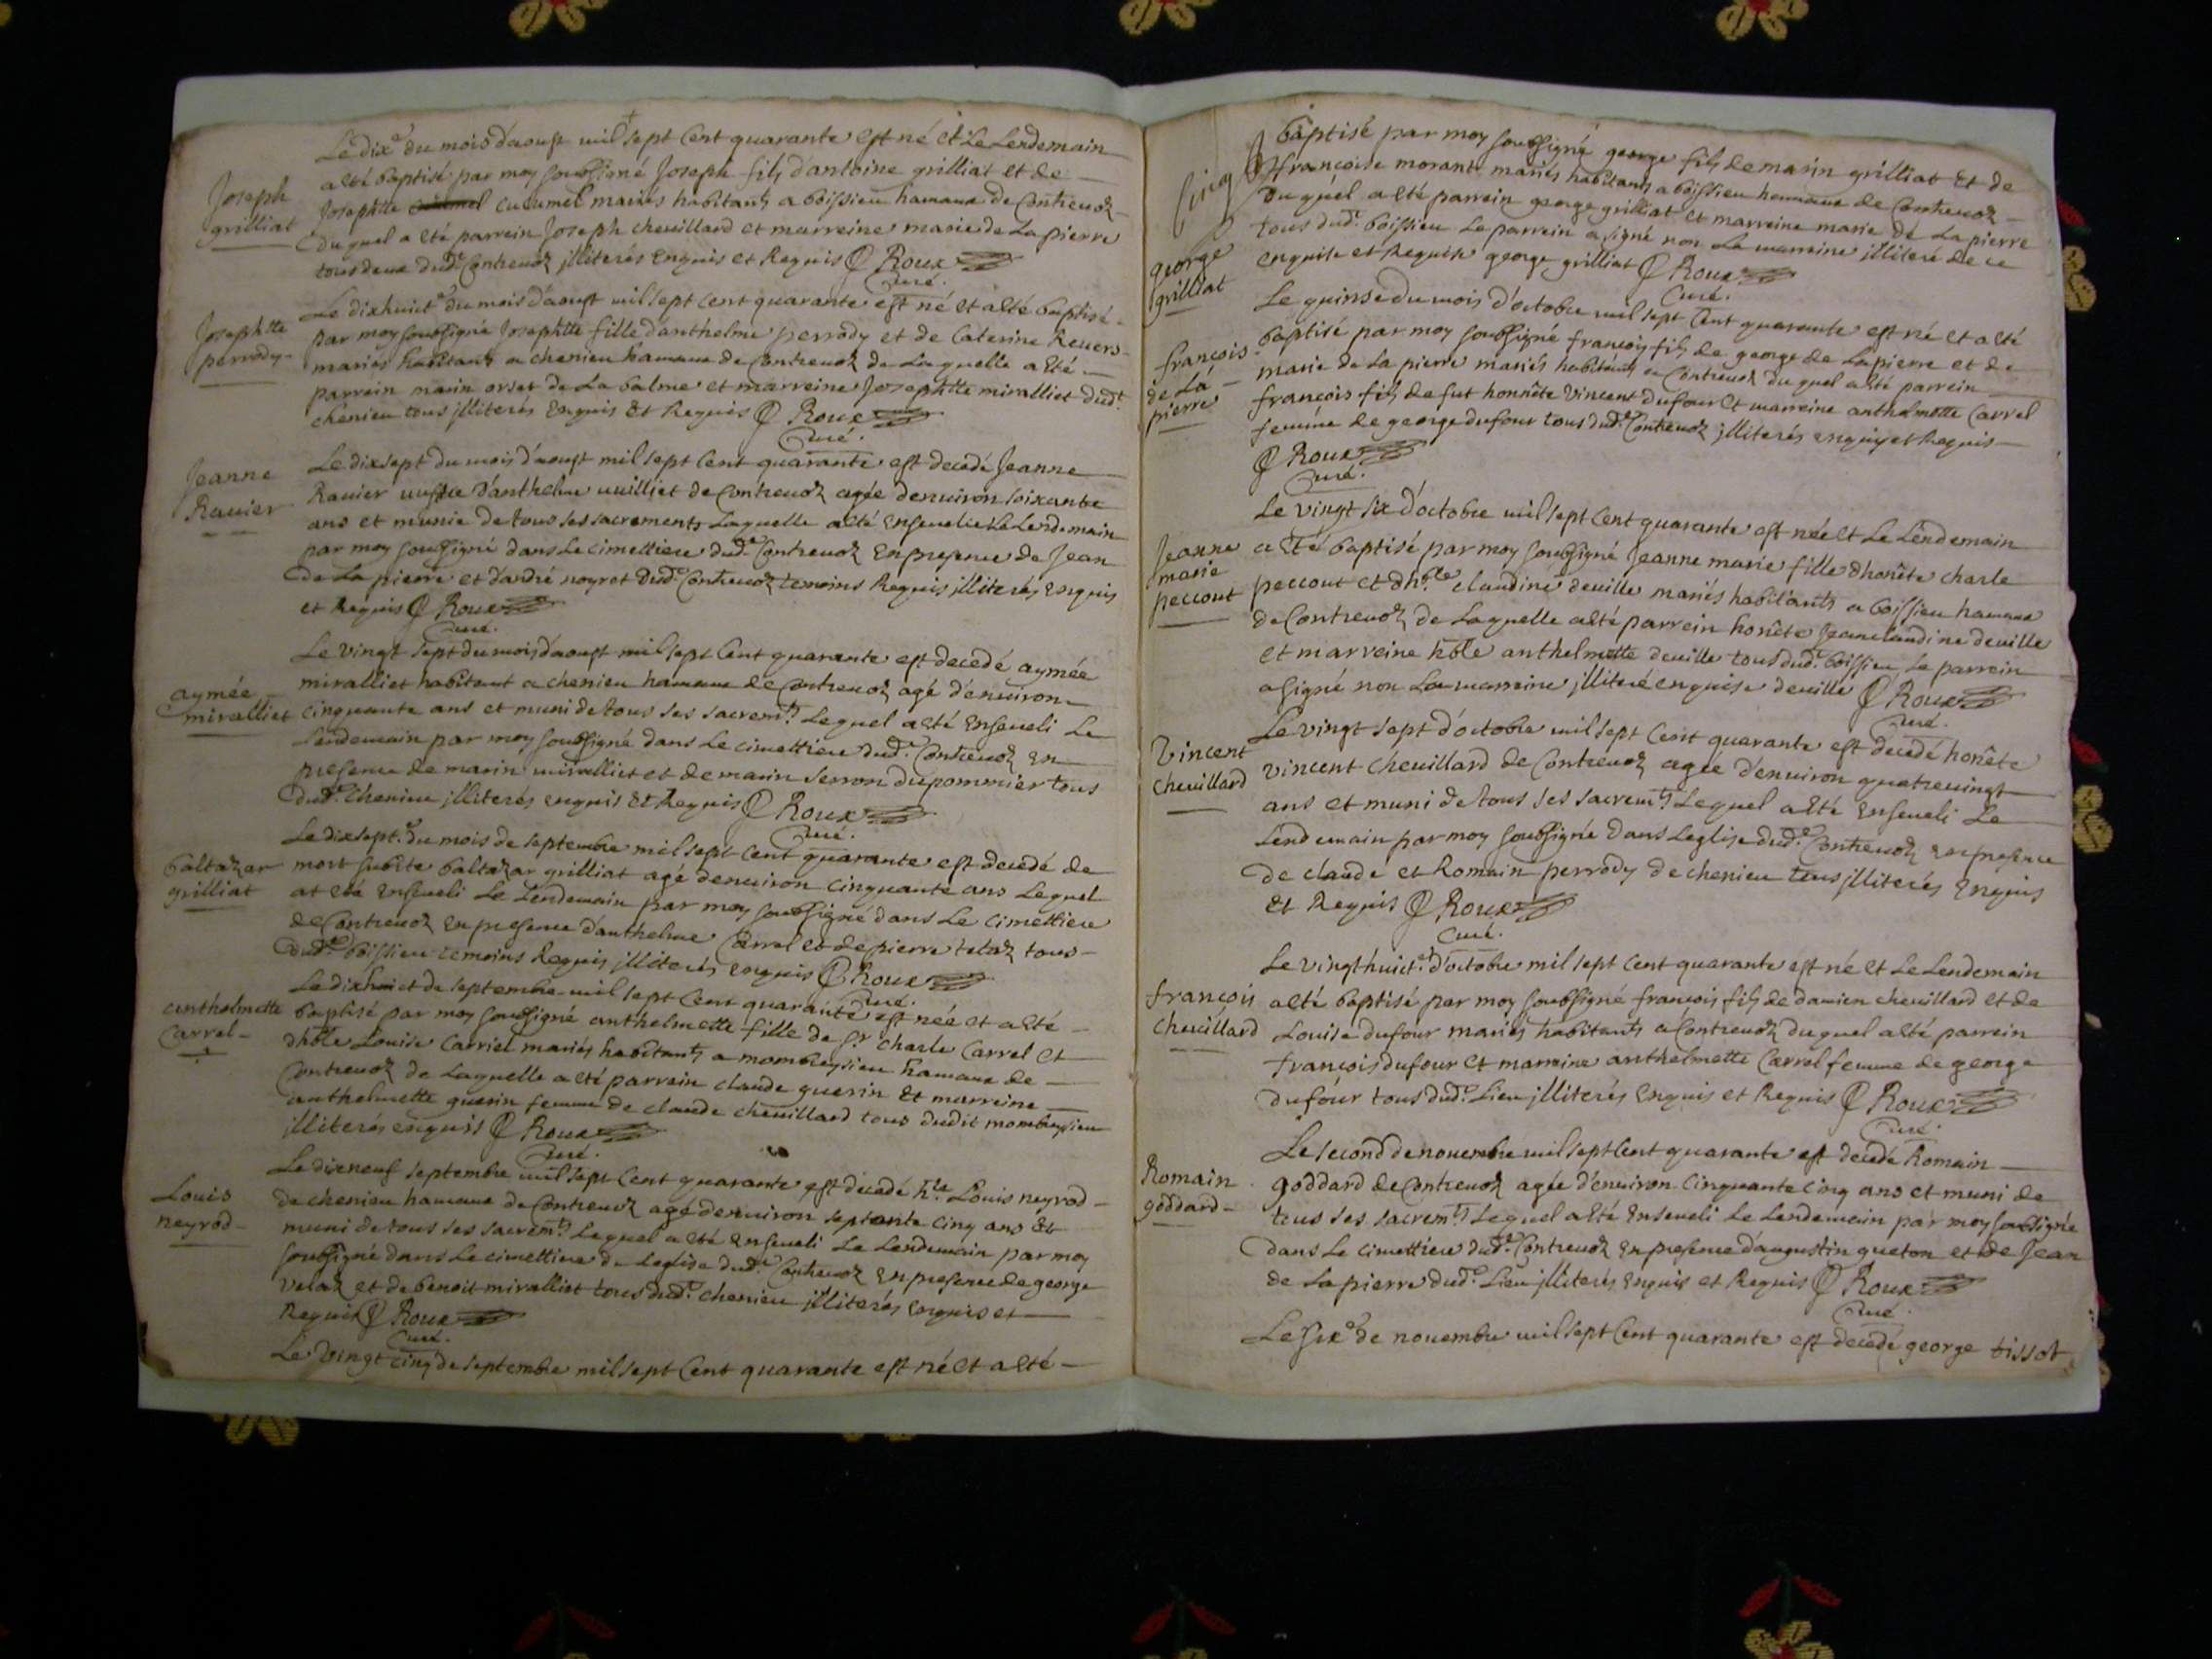 Le dix.e du mois d'aoust mil sept Cent quarante est né et Le Lendemain
Joseph grilliat
a eté baptisé par moy soussigné Joseph fils d'antoine grilliat et de
Josephtte cucumel mariés habitants a boissieu hamaux de Contrevoz
du quel a eté parrein Joseph chevillard et marreine marie de La pierre
tous deux dud.t Contrevoz jlliterés Enquis et Requis Roux
Curé.
Le dixhuict.e du mois d'aoust mil sept Cent quarante est né et a eté baptisé
Josephtte perrody
par moy soussigné Josephtte fille d'anthelme perrody et de Caterine Revers
mariés habitants a chenieu hamaux de Contrevoz de Laquelle a eté
parrein marin orset de La balme et marreine Josephtte miralliet dud.t
chenieu tous jlliterés Enquis Et Requis Roux
Curé.
Jeanne Ravier
Le dixsept du mois d'aoust mil sept Cent quarante est decedé Jeanne
Ravier d'anthelme milliet de Contrevoz agée d'environ soixante
ans et munie de tous ses sacrements Laquelle a eté Ensevelie Le Lendemain
par moy soussigné dans Le cimettiere dud.t Contrevoz En presence de Jean
de La pierre et d'andré noyret dud.t Contrevoz temoins Requis jlliterés Enquis
et Requis Roux
Curé.
Le vingt sept du mois d'aoust mil sept Cent quarante est decedé aymée
aymée miralliet
miralliet habitant a chenieu hamaux de Contrevoz agé d'environ
cinquante ans et muni de tous ses sacrem.ts Lequel a eté Enseveli Le
Lendemain par moy soussigné dans Le cimettiere dud.t Contrevoz En
presence de marin miralliet et de marin serron dupommier tous
dud.t Chenieu jlliterés Enquis Et Requis Roux
Curé.
Le dixsept.e du mois de septembre mil sept Cent quarante est decedé de
baltazar grilliat
mort subite baltazar grilliat agé d'environ cinquante ans Lequel
at eté Enseveli Le Lendemain par moy soussigné dans Le cimettiere
de Contrevoz En presence d'anthelme Carrel et de pierre tous
dud.t boissieu temoins Requis jlliterés Enquis Roux
Curé.
Le dixhuict de septembre mil sept Cent quarante est née et a eté
anthelmette Carrel
baptisé par moy soussigné anthelmette fille de s.r charle Carrel et
d'hble Louise Carriel mariés habitants a mombreysieu hamaux de
Contrevoz de Laquelle a eté parrein claude guerin Et marreine
anthelmette guerin femme de claude chevillard tous dudit mombreysieu
jlliterés enquis Roux
Curé.
Le dixneuf septembre mil sept Cent quarante est decedé h.le Louis neyrod
Louis neyrod
de chenieu hamaux de Contrevoz agé d'environ septante cinq ans Et
muni de tous ses sacrem.ts Lequel a eté Enseveli Le Lendemain par moy
soussigné dans Le cimettiere de Leglise dud.t Contrevoz En presence de george
velaz et de benoit miralliet tous dud.t chenieu jlliterés Enquis et
Requis Roux
Curé.
Le vingt cinq de septembre mil sept Cent quarante est né et a eté
Cinq
baptisé par moy soussigné george fils de marin grilliat Et de
françoise morand mariés habitants a boissieu hamaux de Contrevoz
duquel a eté parrein george grilliat et marreine marie de La pierre
tous dud.t boissieu Le parrein a signé non La marreine jlliteré de ce
george grilliat
enquise et Requise george grilliat Roux
Curé.
Le quinse du mois d'octobre mil sept Cent quarante est né et a eté
françois de La pierre
baptisé par moy soussigné françois fils de george de Lapierre et de
marie de La pierre mariés habitants a Contrevoz du quel a eté parrein
françois fils de fut honnête Vincent dufour et marreine anthelmette Carrel
femme de george dufour tous dud.t Contrevoz jlliterés enquis et Requis
Roux
Curé.
Le vingt six d'octobre mil sept Cent quarante est née et Le Lendemain
Jeanne marie peccout
a Eté baptisé par moy soussigné Jeanne marie fille d'honête charle
peccout et d'h.ble claudine deville mariés habitants a boissieu hamaux
de Contrevoz de Laquelle a eté parrein honête Jean claudine deville
et marreine hble anthelmette deville tous dud.t boissieu Le parrein
a signé non La marreine jlliteré enquise deville Roux
Curé.
Le vingt sept d'octobre mil sept Cent quarante est decedé honête
Vincent chevillard
vincent chevillard de Contrevoz agée d'environ quatrevingt
ans et muni de tous ses sacrem.ts Lequel a eté Enseveli Le
Lendemain par moy soussigné dans Leglise dud.t Contrevoz En presence
de claude et Romain perrody de chenieu tous jlliterés Enquis
Et Requis Roux
Curé.
Le vingthuict.e d'octobre mil sept Cent quarante est né et Le Lendemain
françois chevillard
a eté baptisé par moy soussigné françois fils de damien chevillard et de
Louise dufour mariés habitants a Contrevoz duquel a eté parrein
françois dufour et marreine anthelmette Carrel femme de george
dufour tous dud.t Lieu jlliterés Enquis et Requis Roux
Curé.
Le second de novembre mil sept Cent quarante est decedé Romain
Romain goddard
goddard de Contrevoz agée d'environ Cinquante Cinq ans et muni de
tous ses sacrem.ts Lequel a eté Enseveli Le Lendemain par moy soussigné
dans Le cimettiere dud.t Contrevoz En presence d'augustin queton et de Jean
de La pierre dud.t Lieu jlliterés Enquis et Requis Roux
Curé
Le six.e de novembre mil sept Cent quarante est decedé george tissot